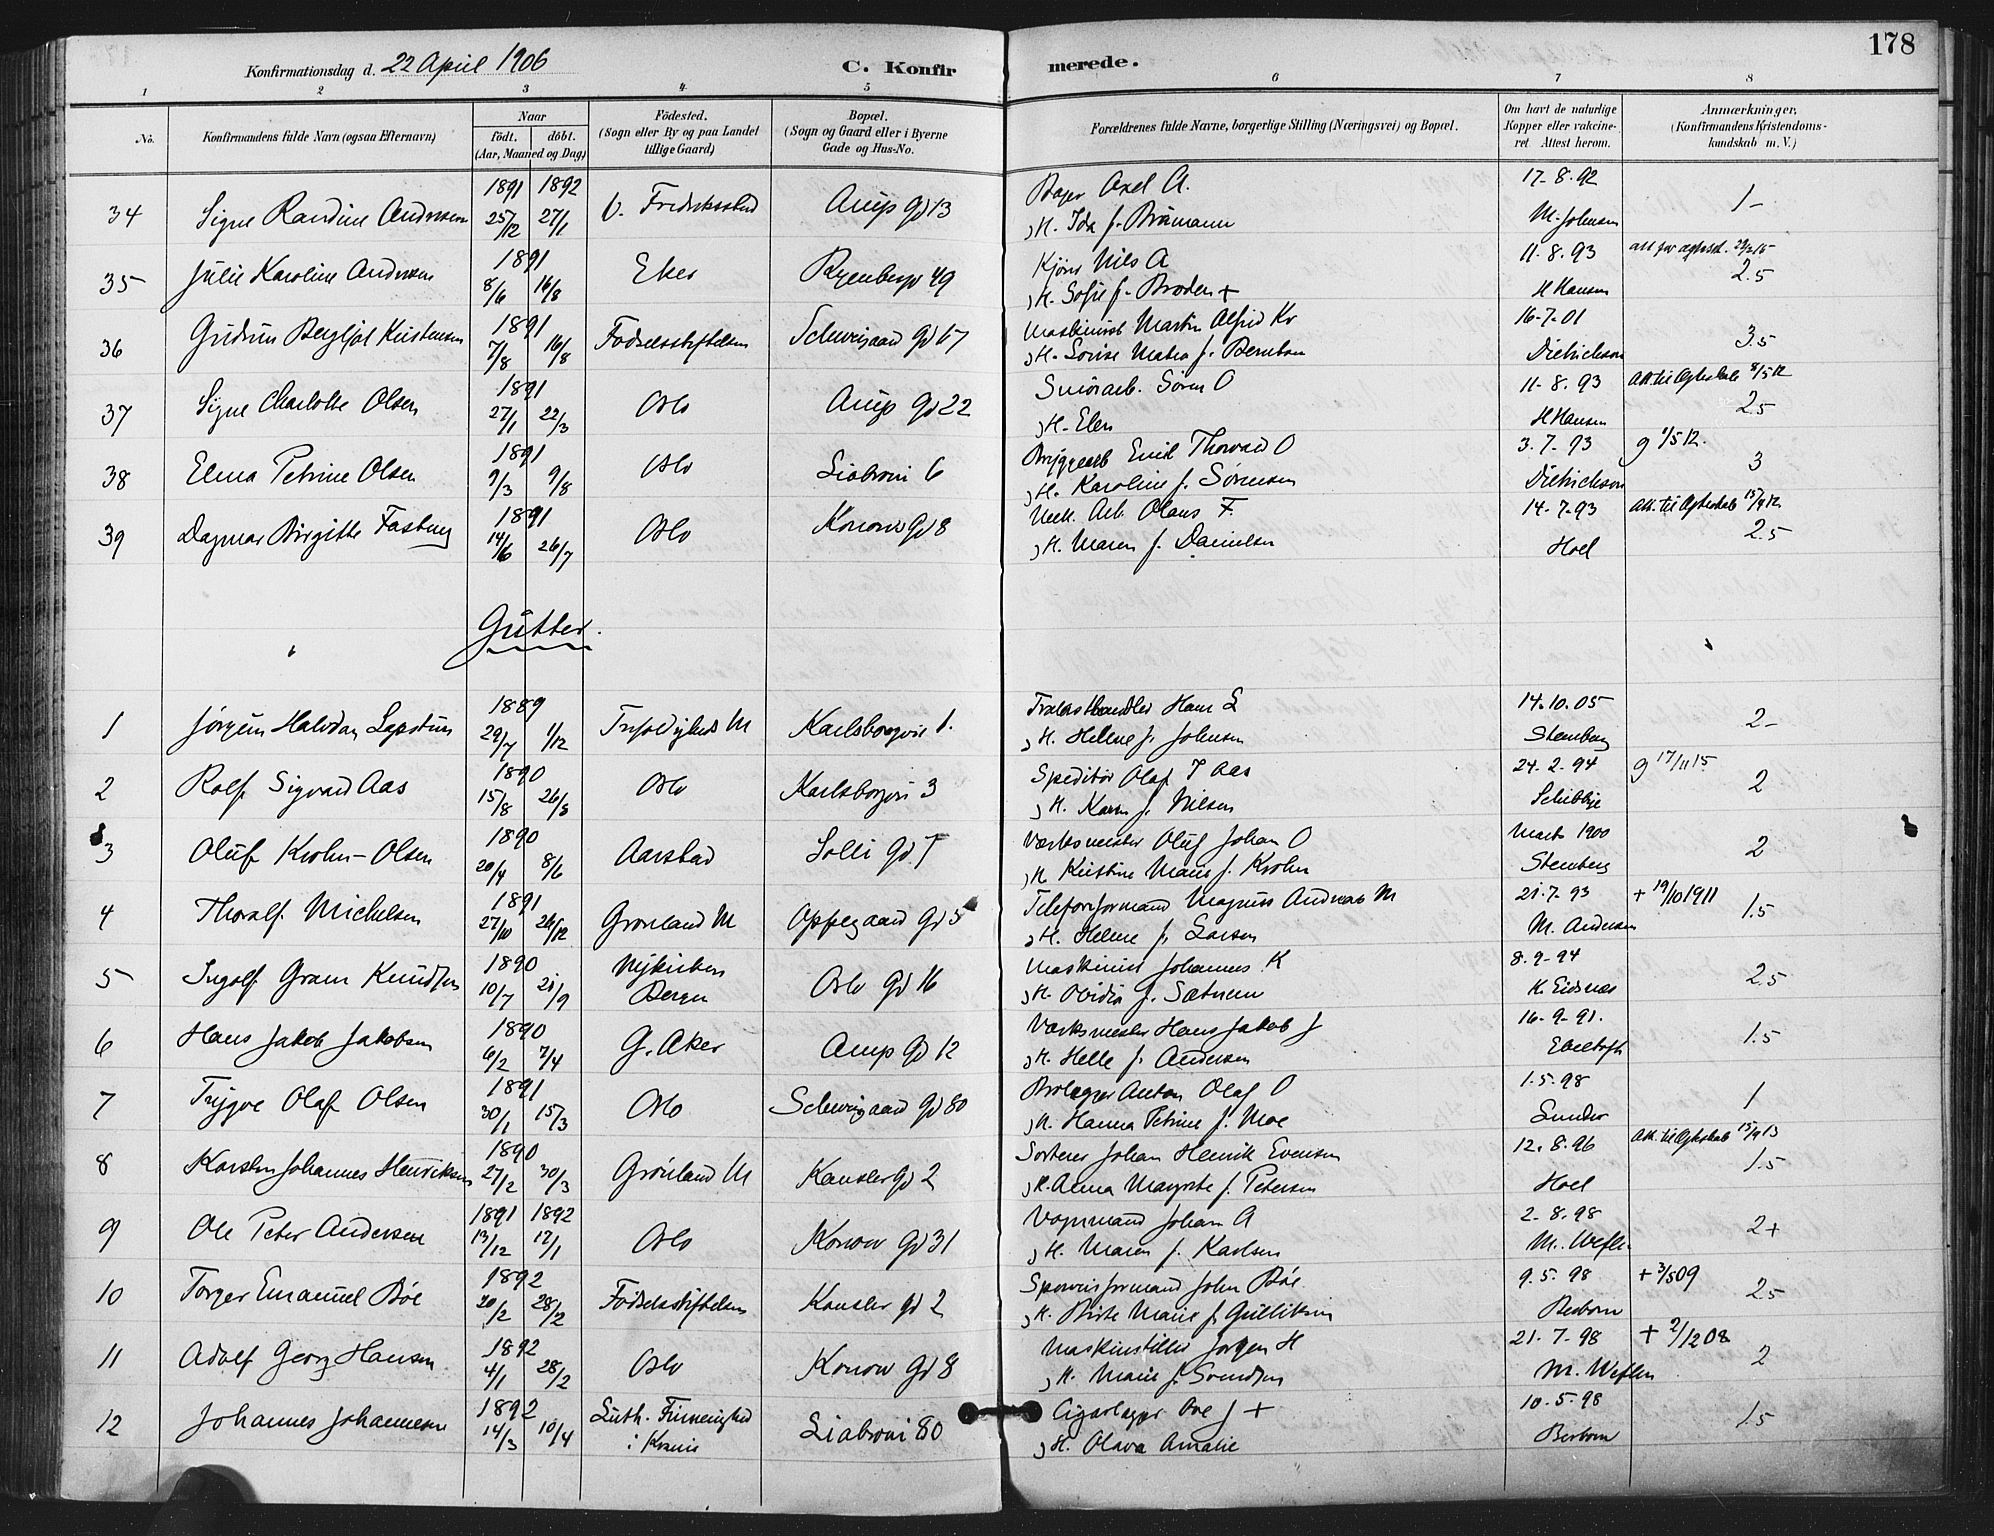 178
Konfirmationsdag d. 22 April 1906
C. Konfir
merede.
1 2 3 4 5 6 7 8
No.
Konfirmandens fulde Navn (ogsaa Efternavn)
Naar
födt. döbt.
(Aar, Maaned og Dag)
Födested.
(Sogn eller By og paa Landet
tillige Gaard)
Bopæl.
(Sogn og Gaard eller i Byerne
Gade og Hus-No.
Forældrenes fulde Navne, borgerlige Stilling (Næringsvei) og Bopæl.
Om havt de naturlige
Kopper eller vakcine-
ret Attest herom.
Anmærkninger,
(Konfirmandens Kristendoms-
kundskab m. V.)
1891 1892 Axel A. 17-8.92
34 Signe Randine Andresen 25/12 27/1 V. Fredrikstad Arup Gd 13 H. Ida f. M. Johnsen 1-
1891 Nils A 11.8.93
35 Julie Karoline Andersen 8/6 16/8 Eker Ryenbergv 49 H. Sofie f. Broden + H Hansen 2.5
1891 Maskinist Martin Alfred Kr 16-7-01
36 Gudrun Bergljot Kristensen 7/8 16/8 Fødselsstiftelsen Schweigaard Gd 67 H. Lovise Matea f. Berntsen Dietrichson 3.5
1891 Søren O 11-8.93 Att. til Ægteskab 8/5 12
37 Signe Charlotte Olsen 27/1 22/3 Oslo Arup Gd 22 H. Elen H Hansen 2.5
1891 Bryggearb Emil Thorvald O 3.7.93 g 1/5 12.
38 Elma Petrine Olsen 9/3 9/8 Oslo Liabrovei 6 H. Karoline f. Sørensen Dietrichson 3
1891 Arb. Olaus F. 14-7-93 Att. til Ægteskab 15/9 12
39 Dagmar Birgitte Fasting 14/6 26/7 Oslo Konows Gd 8 H. Maren f. Danielsen Hoel 2.5
Gutter.
1889 Hans L 14.10.05
1 Jørgen Halvdan Løpstun 29/7 1/12 Trefoldigheds M Karlsborgvei 1. H. Helene f. Johnsen Stenberg 2-
1890 Speditør Olaf T Aas 24.2.94 g 17/11 15
2 Rolf Sigvard Aas 15/8 26/3 Oslo Karlsborgvei 3 H. Karen f. Nilsen Schibbye 2
1890 Værksmester Oluf Johan O Marts 1900
3 Oluf Krohn-Olsen 20/4 8/6 Aarstad Solli Gd 7 H. Kristine Marie f. Krohn Stenberg 2
1891 Telefonformand Magnus Andreas M 21.7.93 + 19/10 1911
4 Thoralf Michelsen 27/10 26/12 Grønland M Oppegaard Gd 5 H. Helene f. Larsen M. Andersen 1.5
1890 Nykirken Maskinist Johannes K 8.9-94
5 Ingolf Gram Knudsen 10/7 21/9 Bergen Oslo Gd 16 H. Ovidia f. Sætrem K. Eidsnæs 2.5
1890 Værksmester Hans Jakob J 16-9-91.
6 Hans Jakob Jakobsen 6/2 7/4 G. Aker Arup Gd 12 H. Helle f. Andersen Ebeltoft 1.5
1891 Brolægger Anton Olaf O 1.5.98
7 Trygve Olaf Olsen 30/1 15/3 Oslo Schweigaard Gd 80 H. Hanna Petrine f. Moe Sunder 1
1890 Sorterer Johan Henrik Evensen 12.8.96 Att. til Ægteskab 15/9 13
8 Karsten Johannes Henriksen 27/2 30/3 Grønland M Kansler Gd 2 H. Anna Margrete f. Petersen Hoel 1.5
1891 1892 Vognmand Johan A 2.8.98
9 Ole Peter Andersen 13/12 17/1 Oslo Konow Gd 31 H. Maren f. Karlsen M. Weflen 2+
1892 Sporveisformand John Bøe 9.5.98 + 3/5 09
10 Torger Emanuel Bøe 20/2 28/2 Fødselsstiftelsen Kansler gd 2 H. Birte Marie f. Gulliksen Berbom 25
1892 Maskinstiller Jørgen H 21-7-98 + 2/12 08
11 Adolf Georg Hansen 4/1 28/2 Oslo Konow Gd 8 H. Marie f. Svendsen M. Weflen 2
1892 Luth. Frimenighed Ove J + 10.5-98
12 Johannes Johannesen 14/3 10/4 i Krania Liabrovei 80 H. Olava Amalie Berbom 1.5